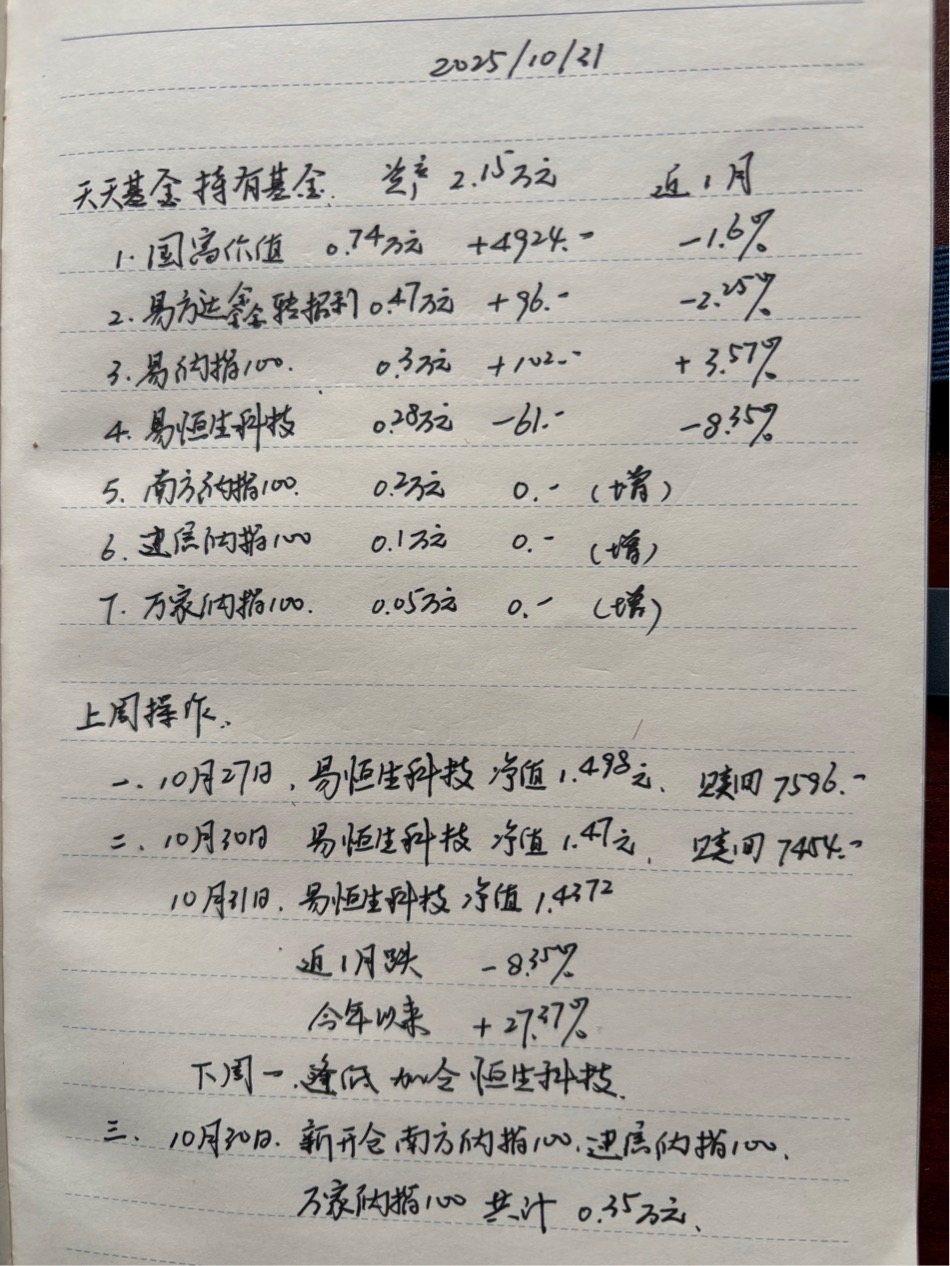 2025/10/31
天天基金 持有基金. 资产 2.15万元 近1月
1. 国富价值 0.74万元 +4924.- -1.6%
2. 易方达鑫转招利 0.47万元 +96.- -2.25%
3. 易纳指100. 0.3万元 +102.- +3.57%
4. 易恒生科技 0.28万元 -61.- -8.35%
5. 南方纳指100. 0.2万元 0.- (增)
6. 建信纳指100 0.1万元 0.- (增)
7. 万家纳指100. 0.05万元 0.- (增)
上周操作.
一. 10月27日, 易恒生科技 净值1.498元. 赎回7596.-
二. 10月30日 易恒生科技 净值1.47元. 赎回7454.-
10月31日. 易恒生科技 净值1.4372
近1月跌 -8.35%
今年以来 +27.37%
下周一.逢低加仓恒生科技.
三. 10月30日. 新开仓南方纳指100.建信纳指100.
万家纳指100 共计 0.35万元.